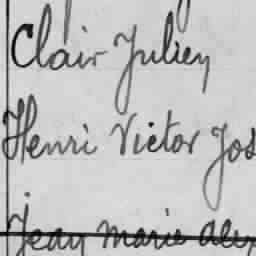 Clair Julien
Henri Victor Jos
Jean Marie Alex